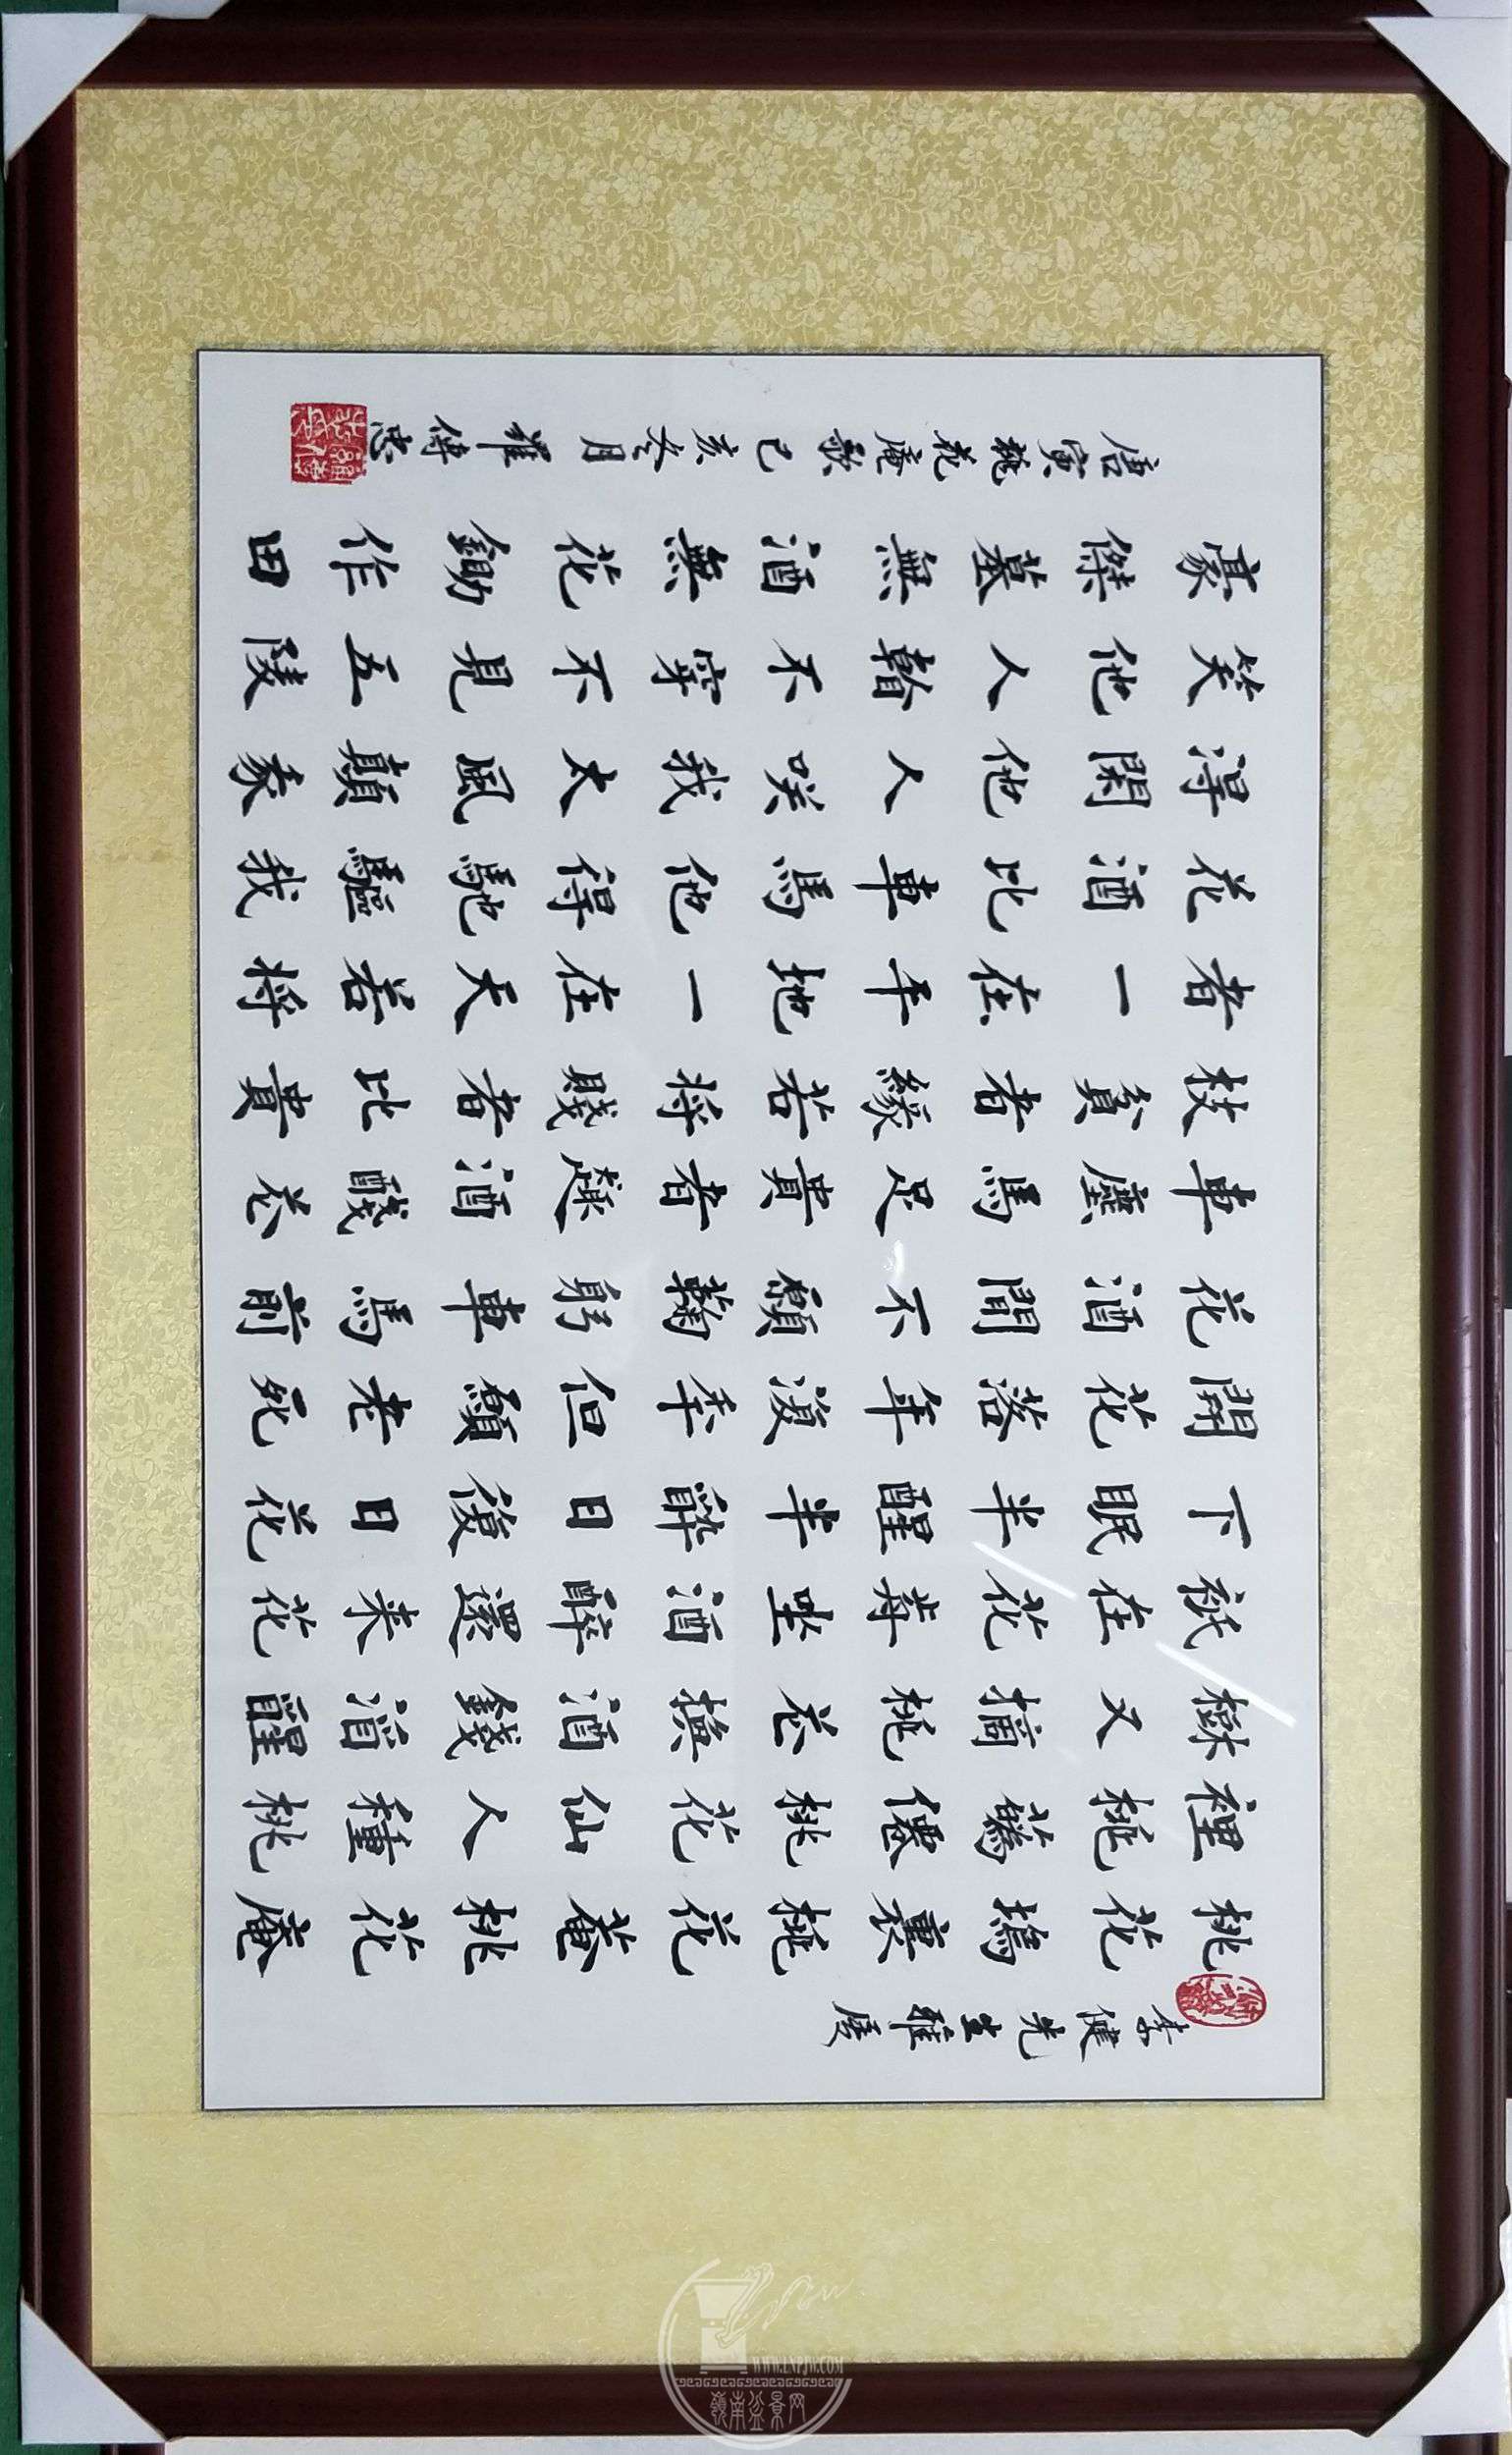 李健先生雅属
桃花塢裏桃花菴桃花庵
裡桃蘤僊桃花仙人種桃
樹又摘桃花換酒錢酒醒
祇在花歬坐酒醉還来花
下眠半醒半醉日復日花
開花落年復年但願老死
花酒間不願鞠躬車馬前
車塵馬足貴者趣酒醆花
枝貧者緣若將賤者比貴
者一在平地一在天若將
花酒比車馬他得馳驅我
得閑他人咲我太風顛我
笑他人看不穿不見五陵
豪傑墓無酒無花鋤作田
唐寅桃花庵歌己亥冬月羅傳忠
WWW.LNPJW.COM
嶺南盆景网